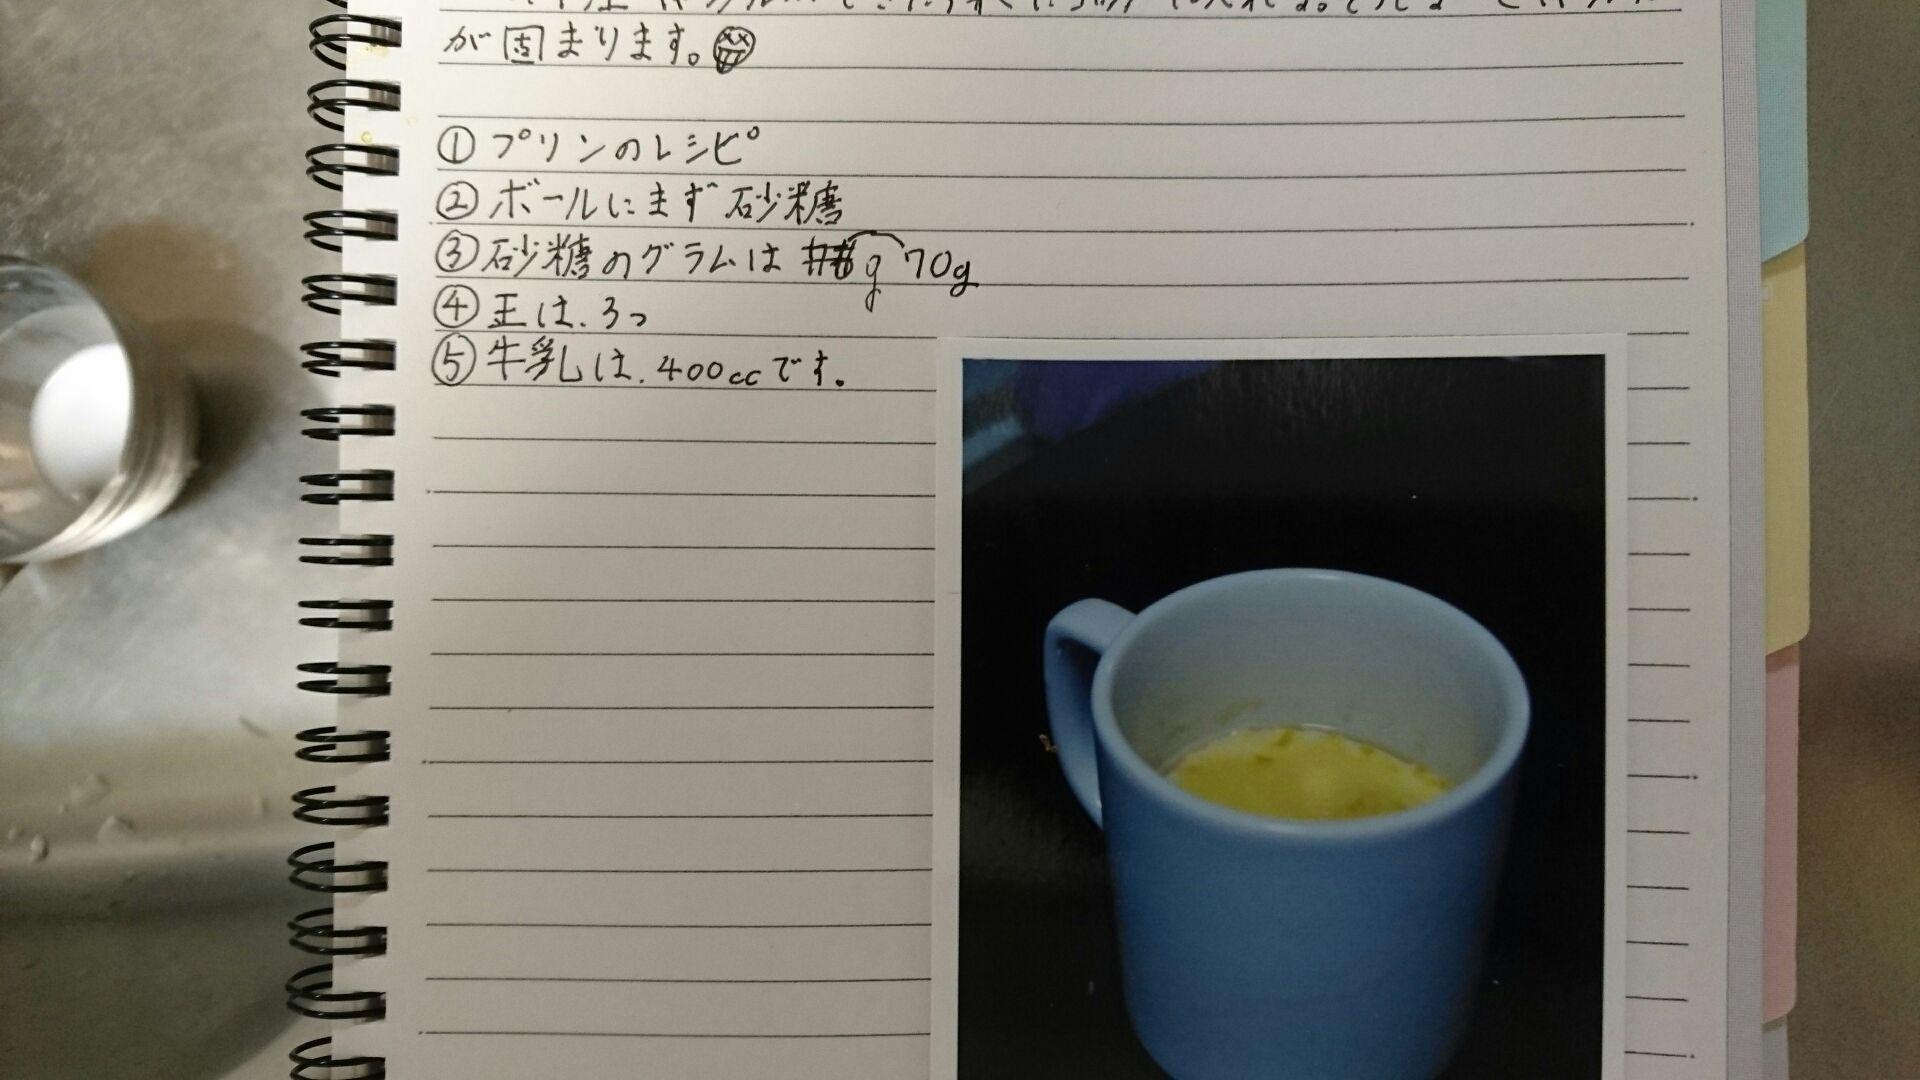 が固まります。
①プリンのレシピ
②ボールにまず砂糖
③砂糖のグラムは g 70g
④玉は、3つ
⑤牛乳は、400ccです。